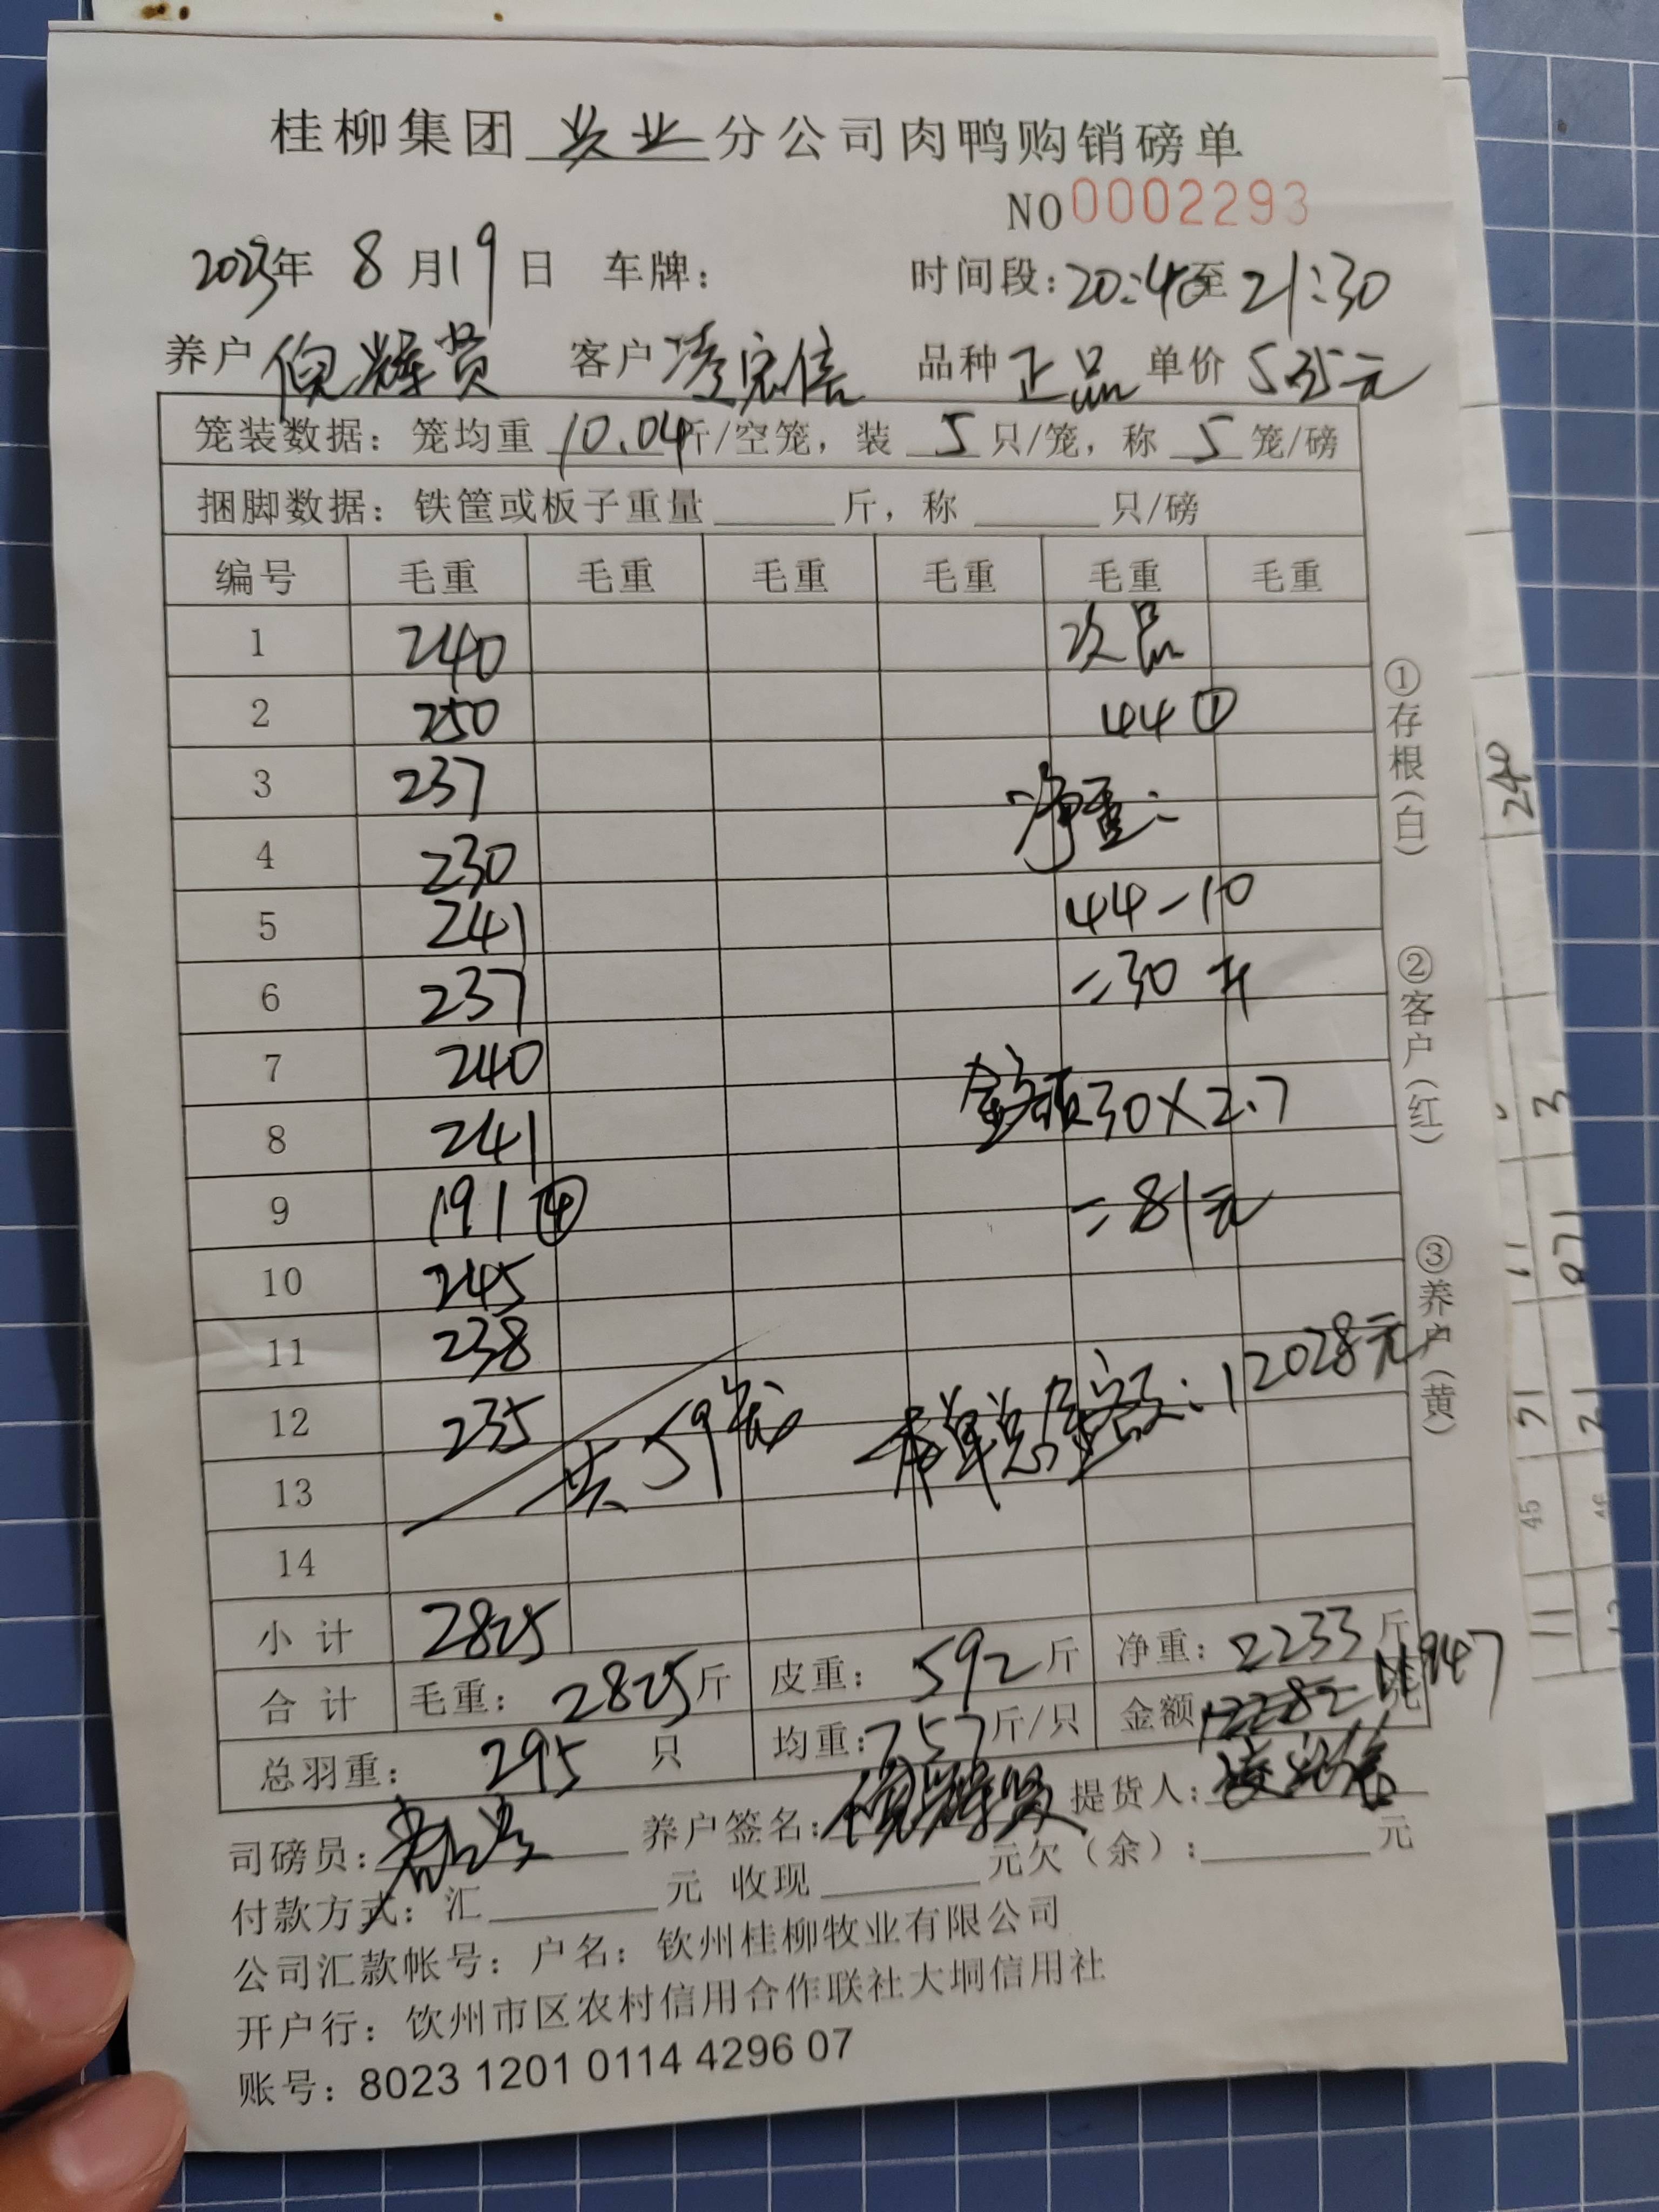 桂柳集团 兴业 分公司肉鸭购销磅单
NO 0002293
2023年 8月19日 车牌： 时间段：20:40至21:30
养户 倪辉贤 客户 凌宏信 品种 正品 单价 5.35元
笼装数据：笼均重 10.04斤/空笼，装 5 只/笼，称 5 笼/磅
捆脚数据：铁筐或板子重量______斤，称______只/磅
编号 毛重 毛重 毛重 毛重 毛重 毛重
1 240 次品
2 250 44①
3 237 净重：
4 230
5 241 44-10
6 237 =30斤
7 240
8 241 金额30×2.7
9 191④ =81元
10 245
11 238
12 235 共59笼 本单总金额：12028元
13
14
小计 2825
合计 毛重：2825斤 皮重：592斤 净重：2233斤
总羽重：295只 均重：757斤/只 金额 12282元 11947
司磅员： 养户签名：倪辉贤 提货人：凌宏信
付款方式：汇______元 收现______元欠（余）：______元
公司汇款帐号：户名：钦州桂柳牧业有限公司
开户行：钦州市区农村信用合作联社大垌信用社
账号：8023 1201 0114 4296 07
①存根（白）
②客户（红）
③养户（黄）
240